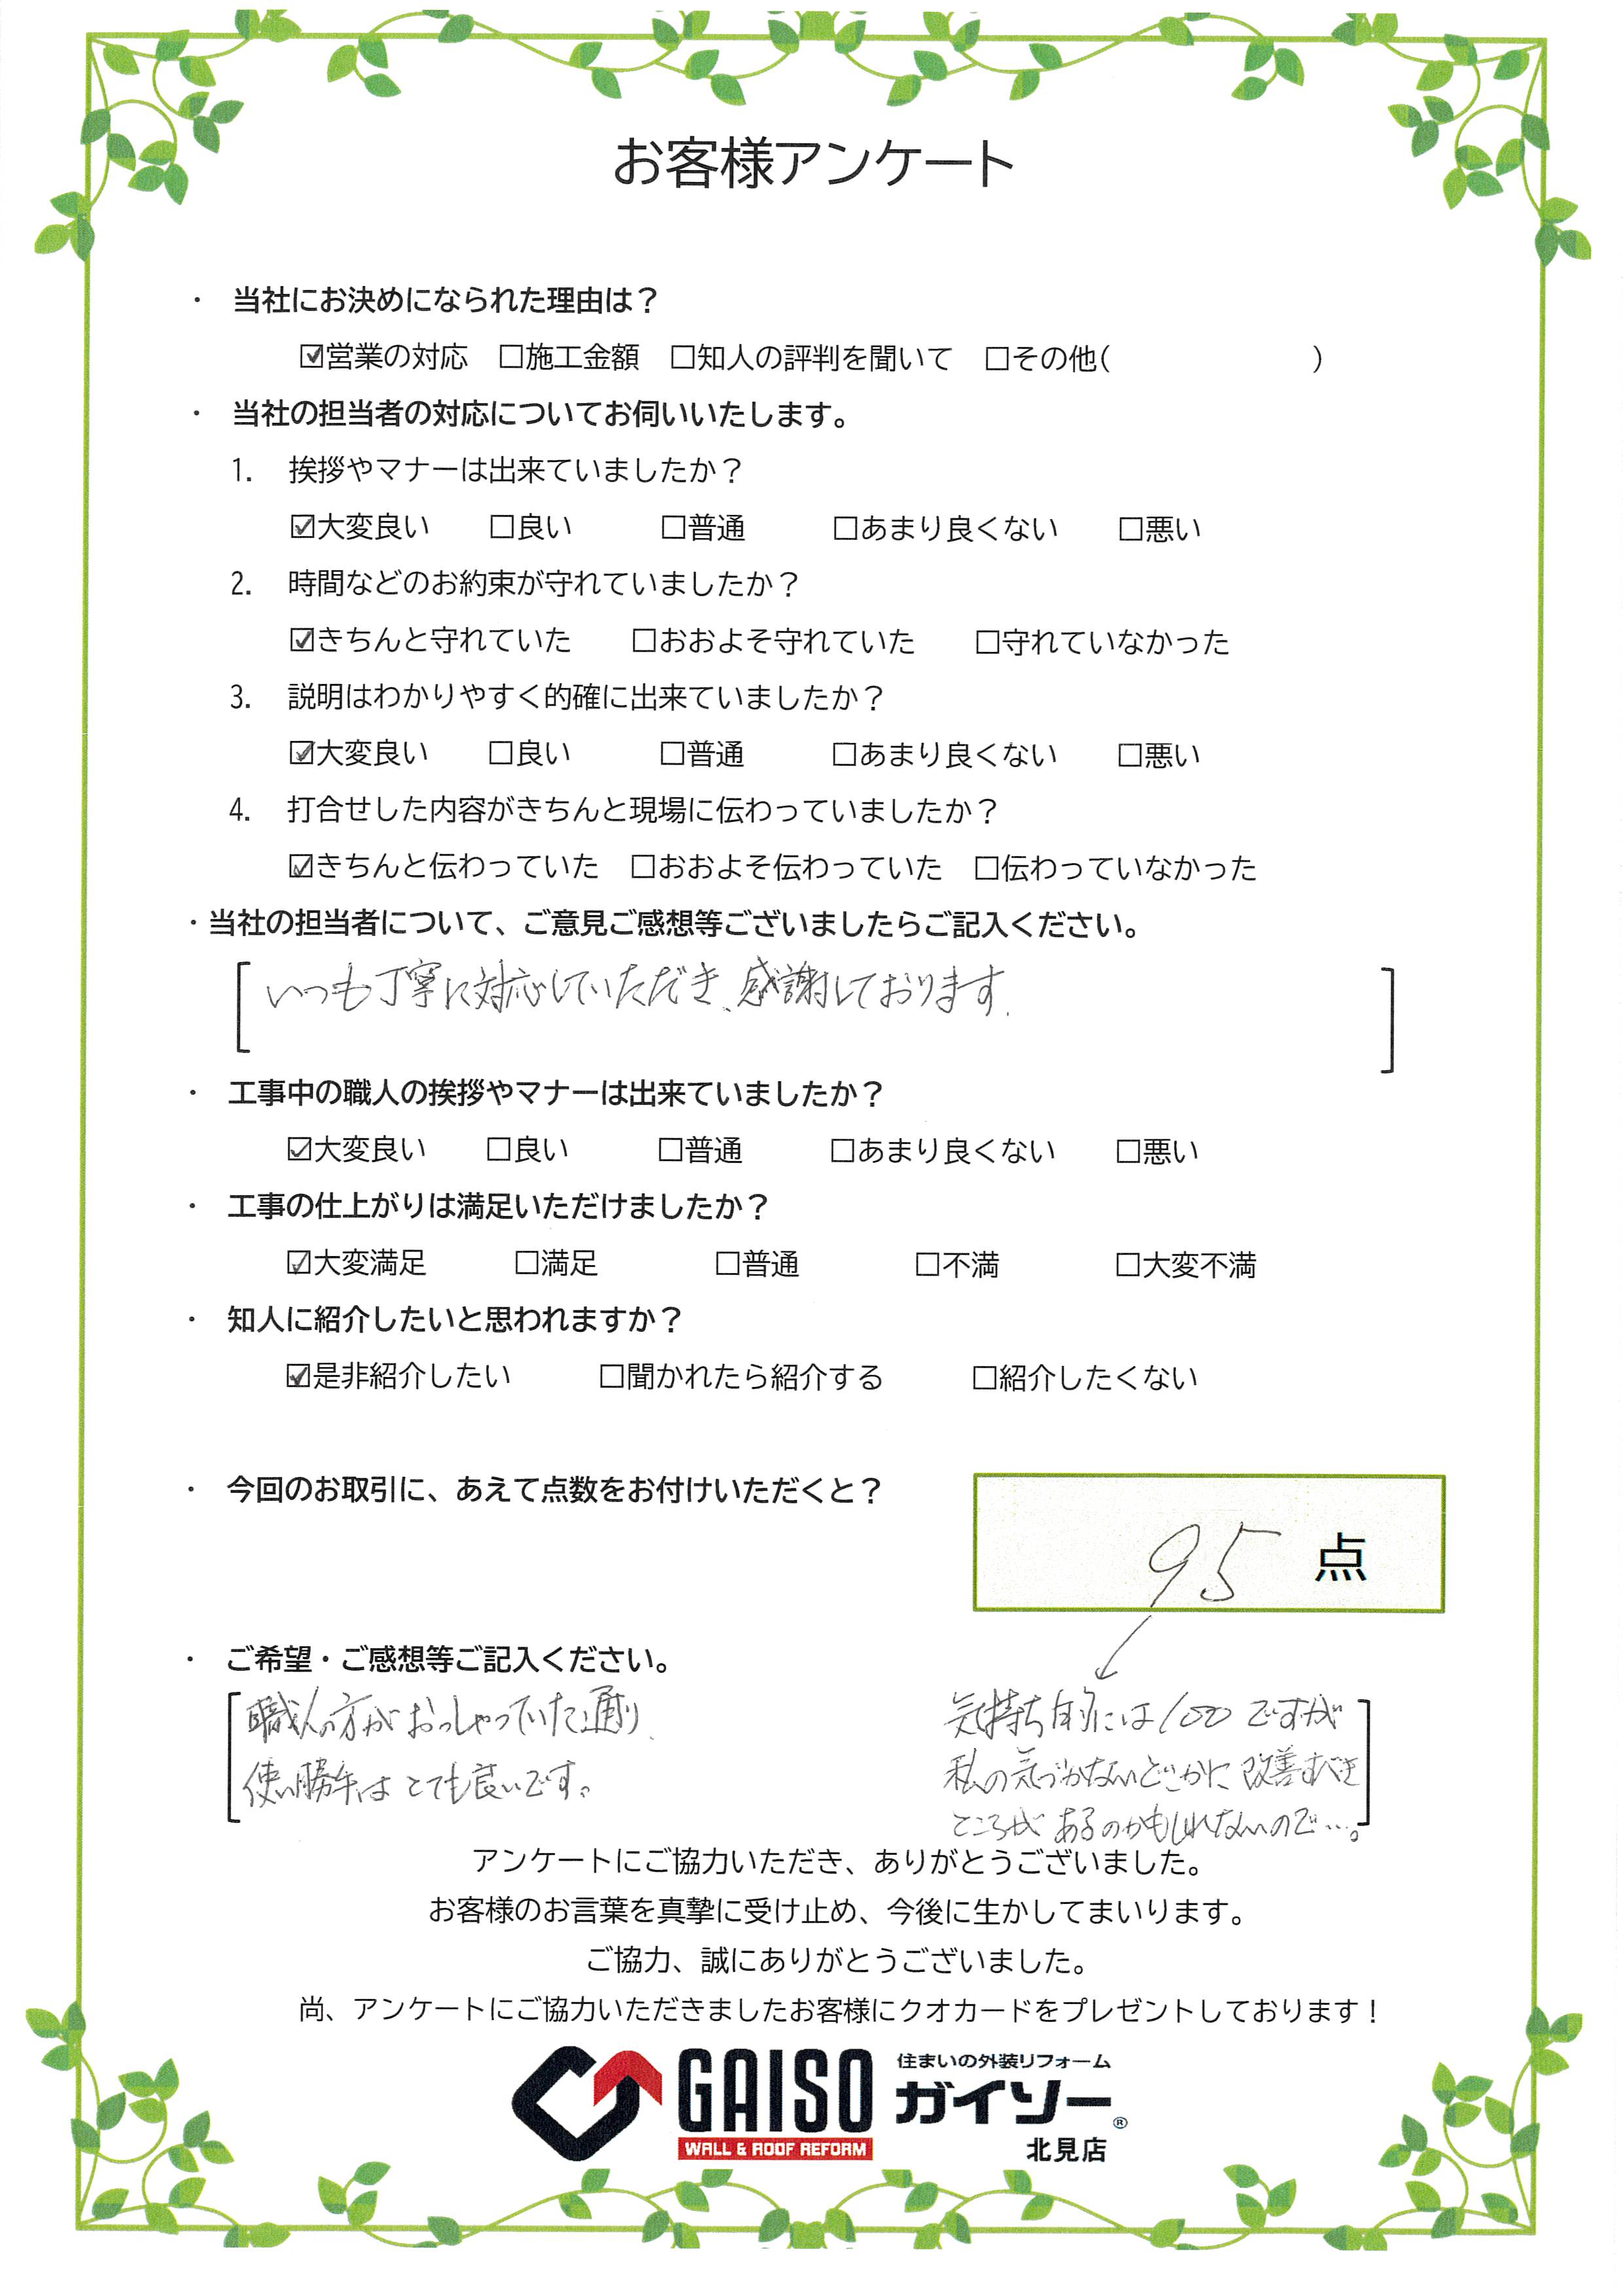 お客様アンケート
・ 当社にお決めになられた理由は？
☑営業の対応 □施工金額 □知人の評判を聞いて □その他( )
・ 当社の担当者の対応についてお伺いいたします。
1. 挨拶やマナーは出来ていましたか？
☑大変良い □良い □普通 □あまり良くない □悪い
2. 時間などのお約束が守れていましたか？
☑きちんと守れていた □おおよそ守れていた □守れていなかった
3. 説明はわかりやすく的確に出来ていましたか？
☑大変良い □良い □普通 □あまり良くない □悪い
4. 打合せした内容がきちんと現場に伝わっていましたか？
☑きちんと伝わっていた □おおよそ伝わっていた □伝わっていなかった
・当社の担当者について、ご意見ご感想等ございましたらご記入ください。
いつも丁寧に対応していただき、感謝しております.
・ 工事中の職人の挨拶やマナーは出来ていましたか？
☑大変良い □良い □普通 □あまり良くない □悪い
・ 工事の仕上がりは満足いただけましたか？
☑大変満足 □満足 □普通 □不満 □大変不満
・ 知人に紹介したいと思われますか？
☑是非紹介したい □聞かれたら紹介する □紹介したくない
・ 今回のお取引に、あえて点数をお付けいただくと？
95 点
・ ご希望・ご感想等ご記入ください。
職人の方がおっしゃっていた通り、
使い勝手はとても良いです。
気持ち的には100ですが
私の気づかないどこかに改善すべき
ところが あるのかもしれないので…。
アンケートにご協力いただき、ありがとうございました。
お客様のお言葉を真摯に受け止め、今後に生かしてまいります。
ご協力、誠にありがとうございました。
尚、アンケートにご協力いただきましたお客様にクオカードをプレゼントしております！
GAISO
WALL & ROOF REFORM
住まいの外装リフォーム
ガイソー®
北見店